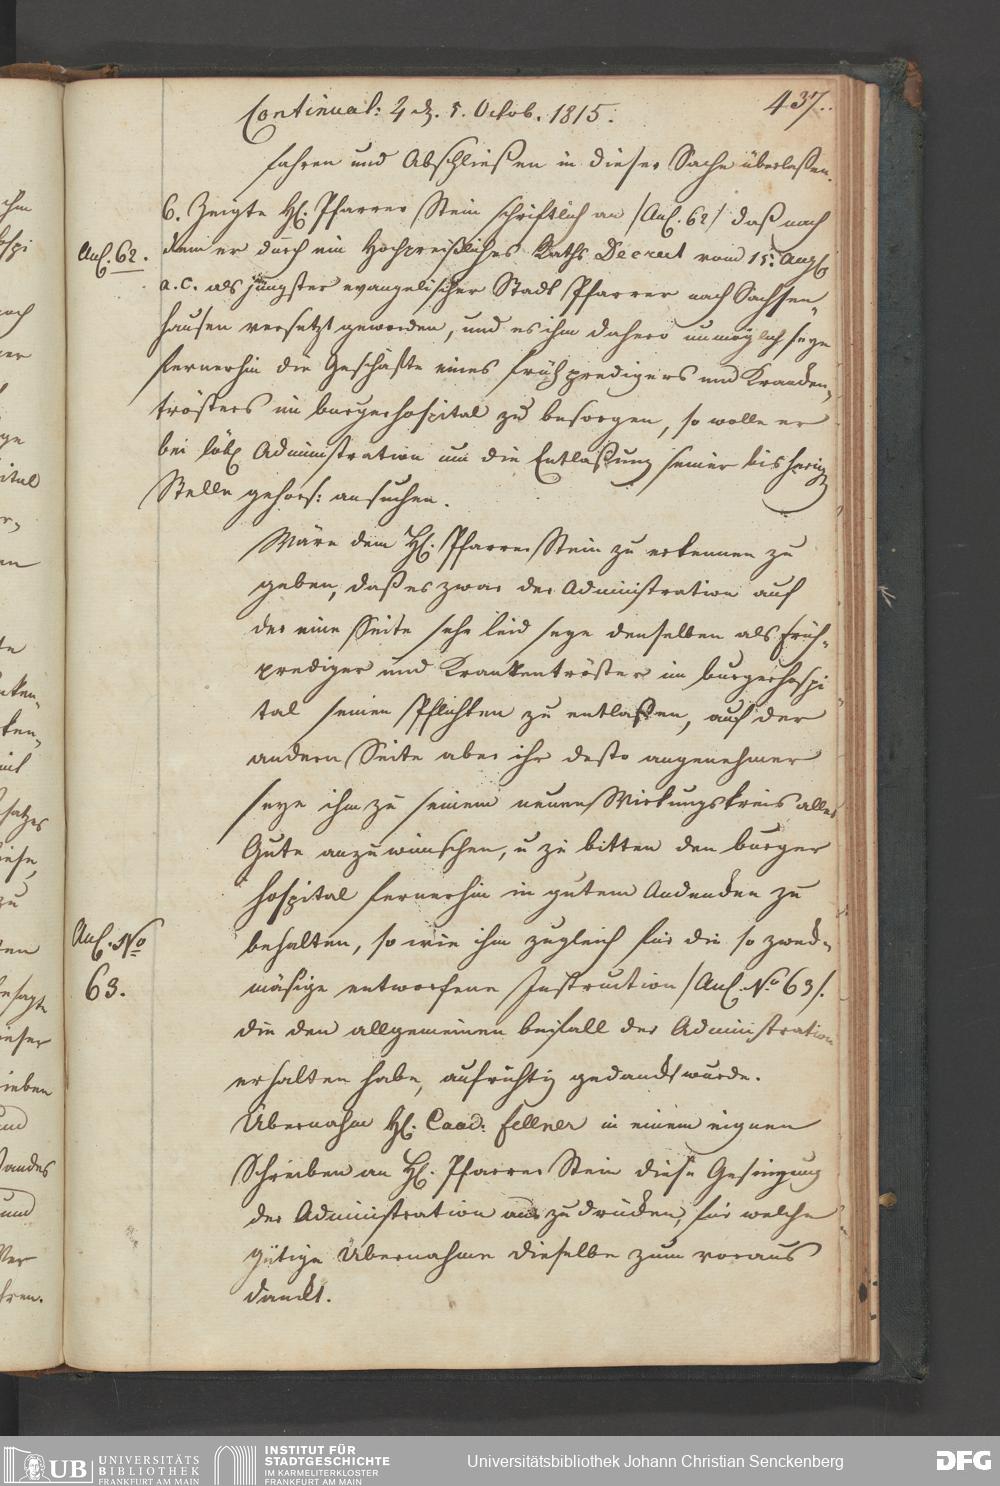 437.
Continuat: d. 5. Octob. 1815.
fahren und Abschließen in dieser Sache überlaßen.
6. Zeigte H. Pfarrer Stein schriftlich an /Anl. 62/ daß nach
Anl. 62.
dem er durch ein Hochpreißliches Raths Decret vom 15. Aug.
a. c. als jüngster evangelischer Stadt Pfarrer nach Sachsen-
hausen versetzt geworden, und es ihm dahero unmöglich seye
fernerhin die Geschäfte eines Frühpredigers und Krancken-
trösters im burgerhospital zu besorgen, so wolle er
bei löbl. Administration um die Entlaßung seiner bisherig
Stelle gehors: ansuchen.
Wäre dem H. Pfarrer Stein zu erkennen zu
geben, daß es zwar der Administration auf
der eine Seite sehr leid seye denselben als Früh-
prediger und Krankentröster im burgerhospi
tal seinen Pflichten zu entlaßen, auf der
andern Seite aber ihr desto angenehmer
seye ihm zu seinem neuen Wirkungskreis alles
Gute anzuwünschen, u zu bitten den burger
hospital fernerhin in gutem Andencken zu
behalten, so wie ihm zugleich für die so zweck-
Anl. No
63.
mäsige entworfene Instruction /Anl. No 63/.
die den allgemeinen beifall der Administration
erhalten habe, aufrichtig gedanckt wurde.
Übernahm H. Cand: Fellner in einem eignen
Schreiben an H. Pfarrer Stein diese Gesinnung
der Administration auszudrücken, für welche
gütige Übernahme dieselbe zum voraus
danckt.
UB UNIVERSITÄTS
BIBLIOTHEK
FRANKFURT AM MAIN
INSTITUT FÜR
STADTGESCHICHTE
IM KARMELITERKLOSTER
FRANKFURT AM MAIN
Universitätsbibliothek Johann Christian Senckenberg
DFG